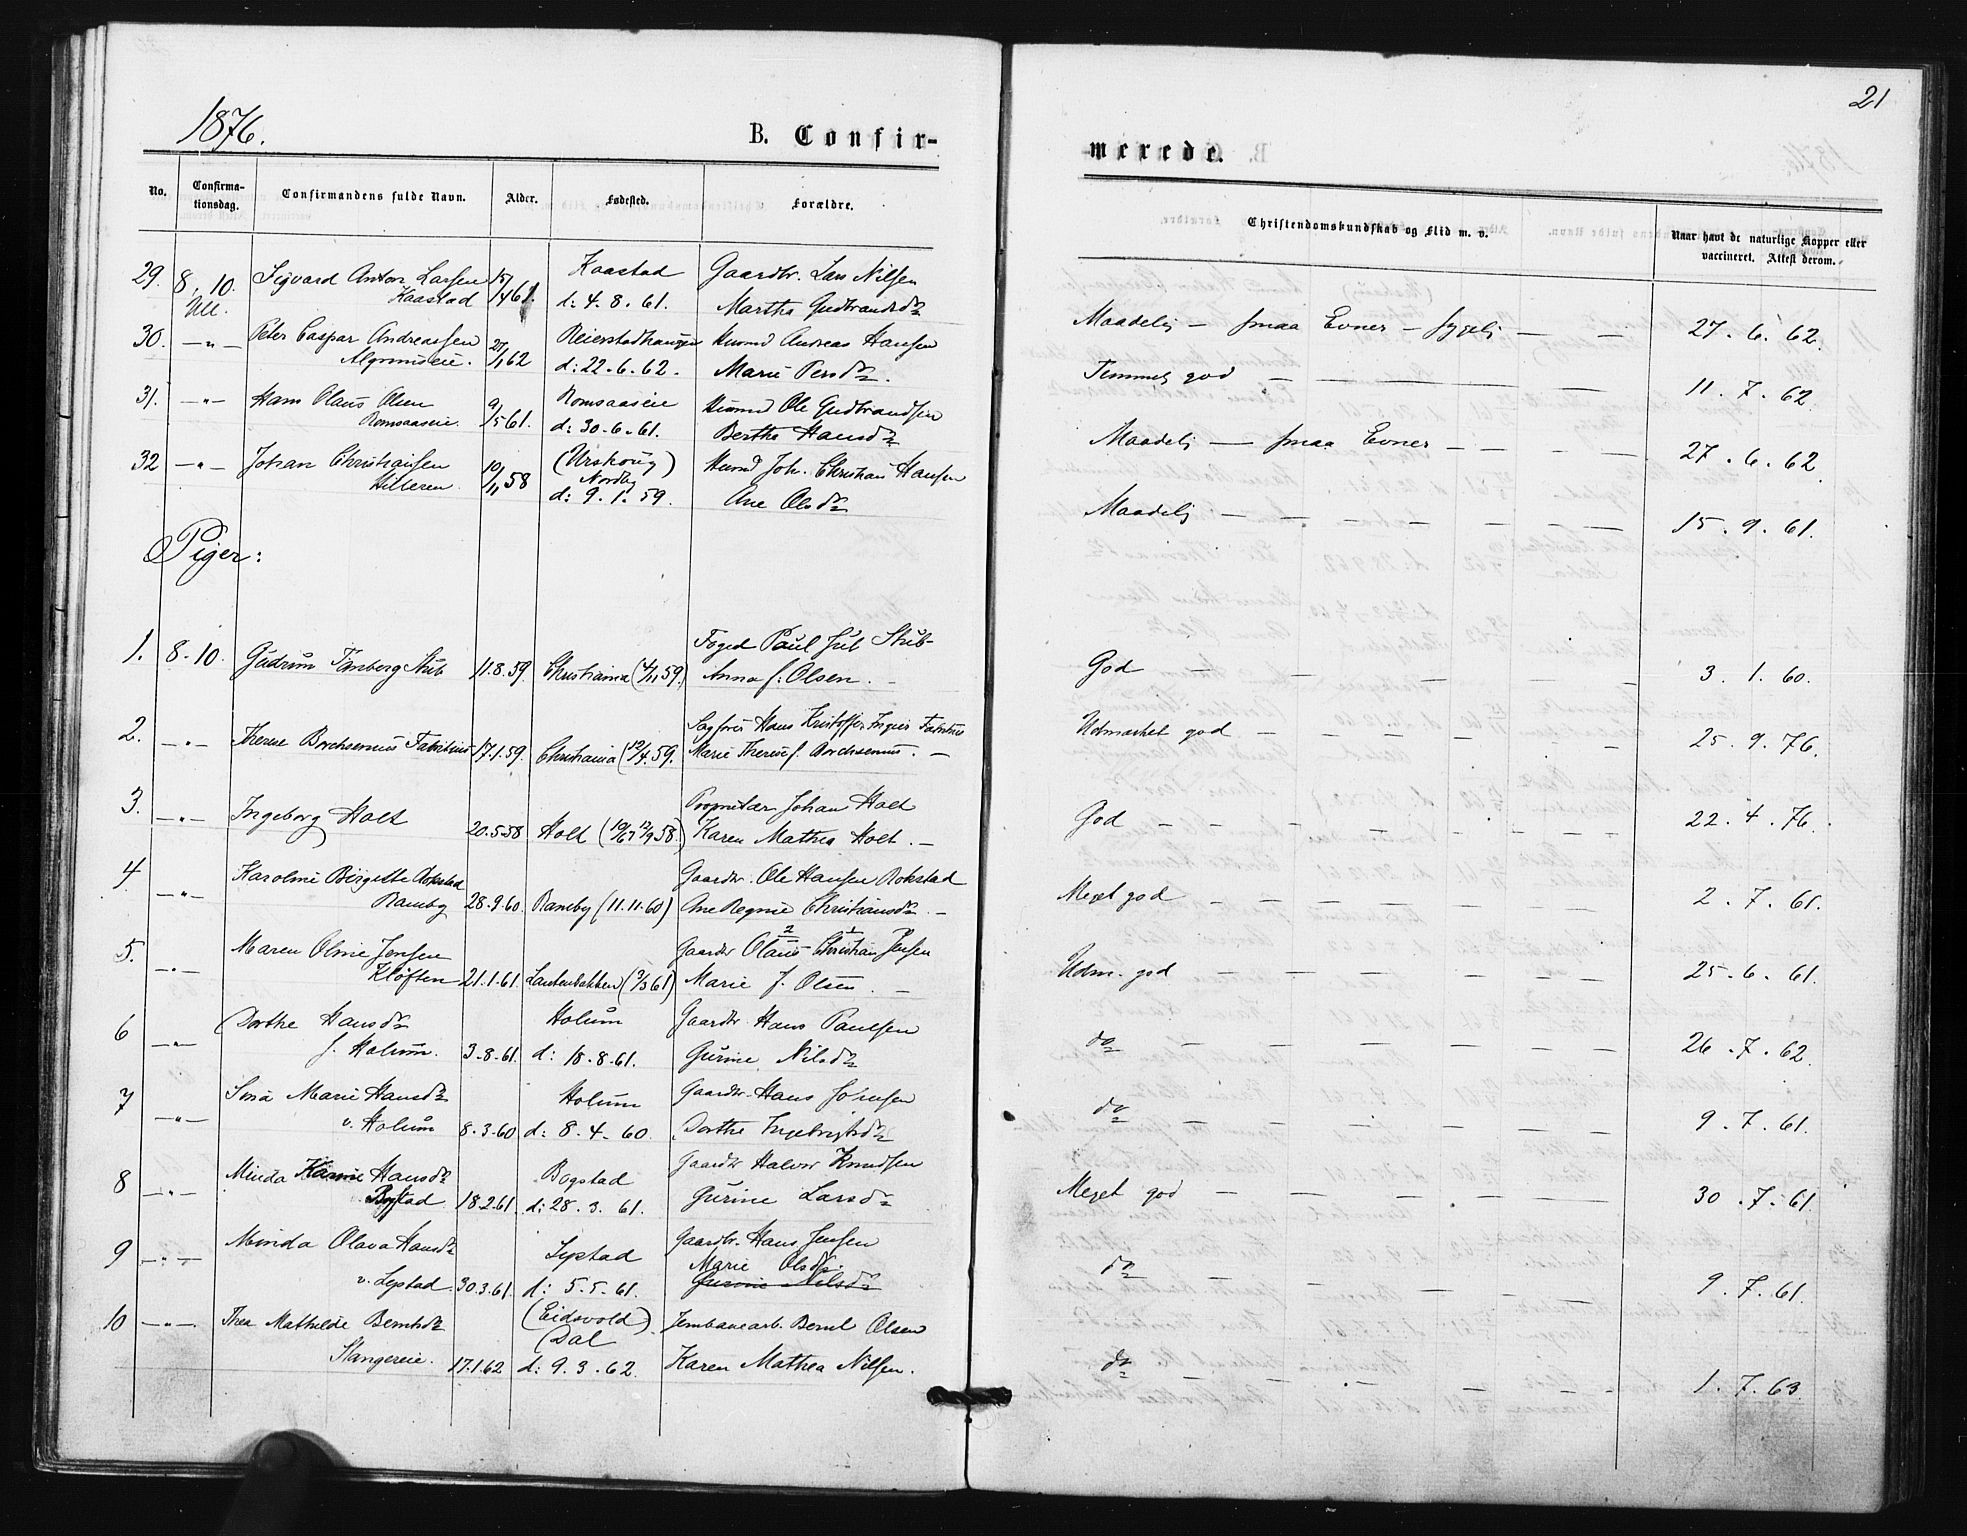 1876.
B. Confir-
No. Confirma-tionsdag. Confirmandens fulde Navn. Alder. Fødested. Forældre.
29. 8. 10. Sigvard Anton Larsen 15/4 61. Kaastad Gaardbr. Lars Nilsen
Ull. Kaastad d: 4. 8. 61. Martha Gudbrandsdr
30. —"— Peter Caspar Andreassen 27/1 62 Reierstadhaugen Husmd Andreas Hansen
Algrimseie. d: 22-6-62. Marie Persdr.
31. —"— Hans Olaus Olsen 9/5 61. Romsaaseie Husmd Ole Gudbrandsen
Romsaaseie. d: 30-6-61. Berthe Hansdr
32 —"— Johan Christiansen 10/11 58 (Urskoug) Husmd Joh. Christian Hansen
Hilleren. Nordby
d: 9. 1. 59. Ane Olsdr
Piger:
1. 8-10. Gudrun Tønsberg Stub 11.8.59. Christiania (4/11 59.) Foged Paul Juel Stub-
Anna f. Olsen. -
2. —"— Therese Borchsenius Fabritius 17.1.59. Christiania (12/4 59. Sagfører Hans Kristoffer Fabritius
Marie Therese f. Borchsenius. —
3. —"— Ingeborg Holt 20.5.58 Holt (10/6 12/9 58.) Proprietær Johan Holt
Karen Mathea Holt. —
4 —"— Karoline Birgitte Rokstad Gaardbr. Ole Hansen Rokstad
Ramby 28.9.60. Ramby (11.11.60) Ane Regine Christiansdr. —
5. —"— Maren Oline Jensen Gaardbr Olaus 2 Christian 1 Jensen
Kløften 21.1.61. (3/3 61) Marie f. Olsen. —
6 —"— Dorthe Hansdr Holum Gaardbr. Hans Paulsen
f. Holum. 3-8-61. d: 18-8-61. Gurine Nilsdr
7 —"— Marie Hansdr Holum Gaardbr. Hans Jensen
v. Holum 8.3.60 d: 8-4-60. Dorthe Ingebrigtsdr
8 —"— Minda Karine Hansdr Bogstad Gaardbr Halvor Knudsen
Bogstad 18.2.61. d: 28. 3. 61. Gurine Larsdr
9 —"— Minda Olava Hansdr Lystad Gaardbr. Hans Jensen
Marie Olsdr.
v. Lystad. 30.3.61. d: 5.5.61. Gurine Nilsdr
10 —"— Thea Mathilde Berntsdr (Eidsvold) Jernbanearb. Bernt Olsen
(Dal
Stangereie. 17.1.62 d: 9.3.62. Karen Mathea Nilsen.
21
merede.
Christendomskundskab og Flid m. v. Naar havt de naturlige Kopper eller vaccineret. Attest derom.
Maadelig — smaa Evner — sygelig — 27. 6. 62.
Temmelig god — 11. 7. 62.
Maadelig — smaa Evner — 27. 6. 62.
Maadelig — 15. 9. 61.
God — 3. 1. 60.
Udmærket god — 25. 9. 76.
God — 22. 4. 76.
Meget god — 2. 7. 61.
Udm. god — 25. 6. 61.
do — 26. 7. 62.
do — 9. 7. 61.
Meget god — 30. 7. 61.
do — 9. 7. 61.
do — 1. 7. 63.